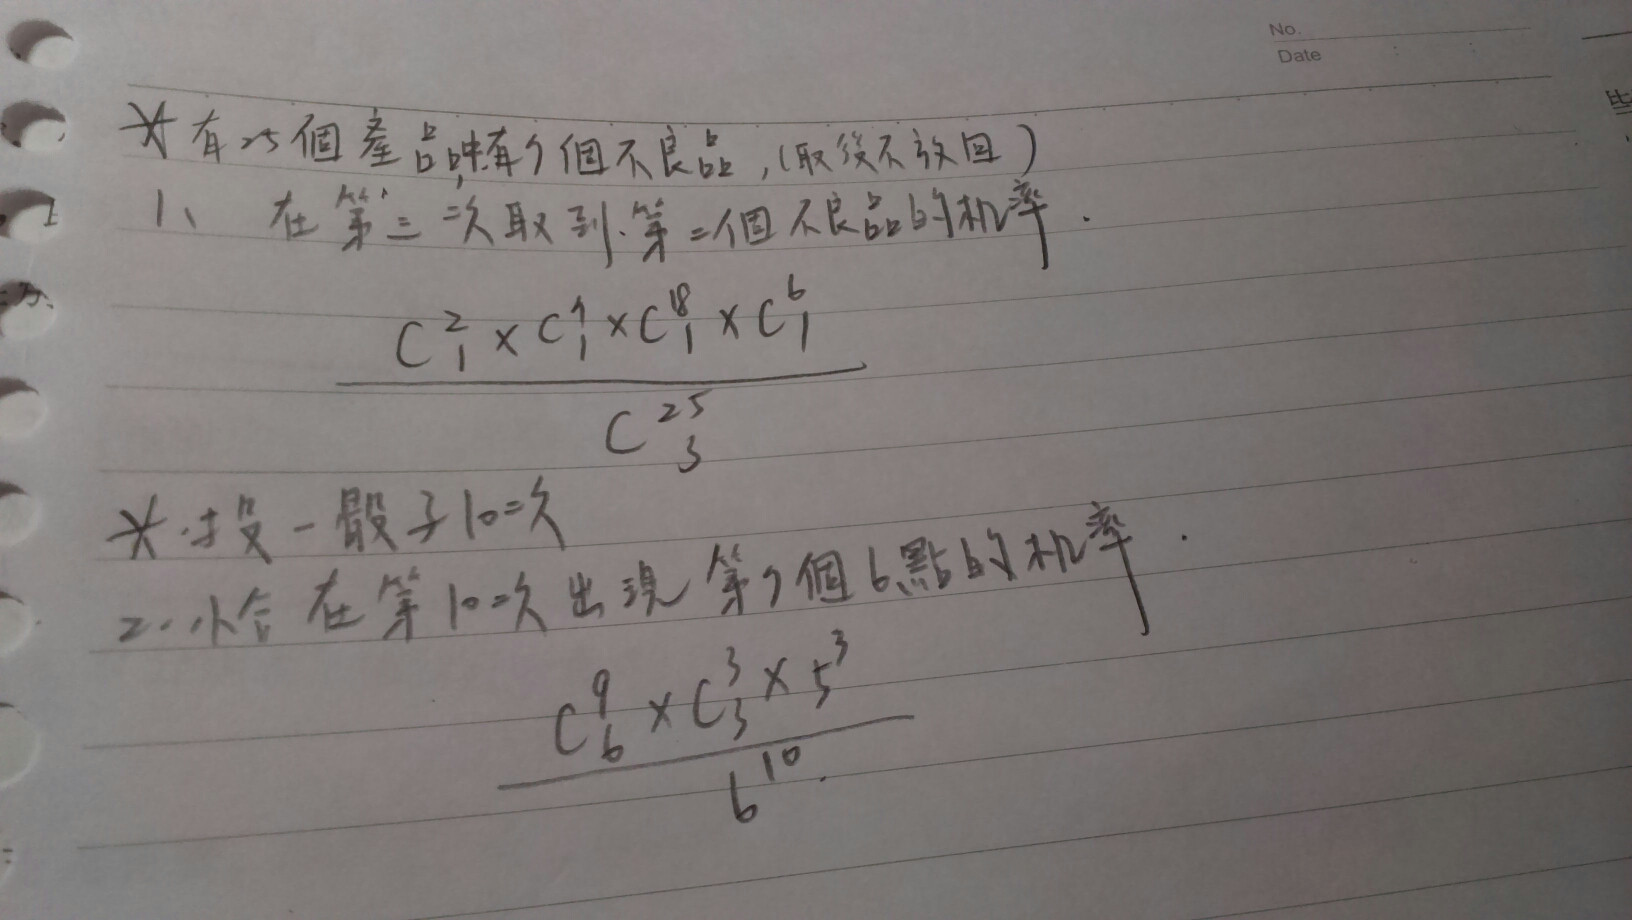 No.
Date
* 有25個產品,中有7個不良品,(取後不放回)
1、 在第三次取到第二個不良品的机率.
C²₁ × C⁷₁ × C¹⁸₁ × C⁶₁
C²⁵₃
* 投一骰子10次
2. 恰在第10次出現第7個6點的机率.
C⁹₆ × C³₃ × 5³
6¹⁰.